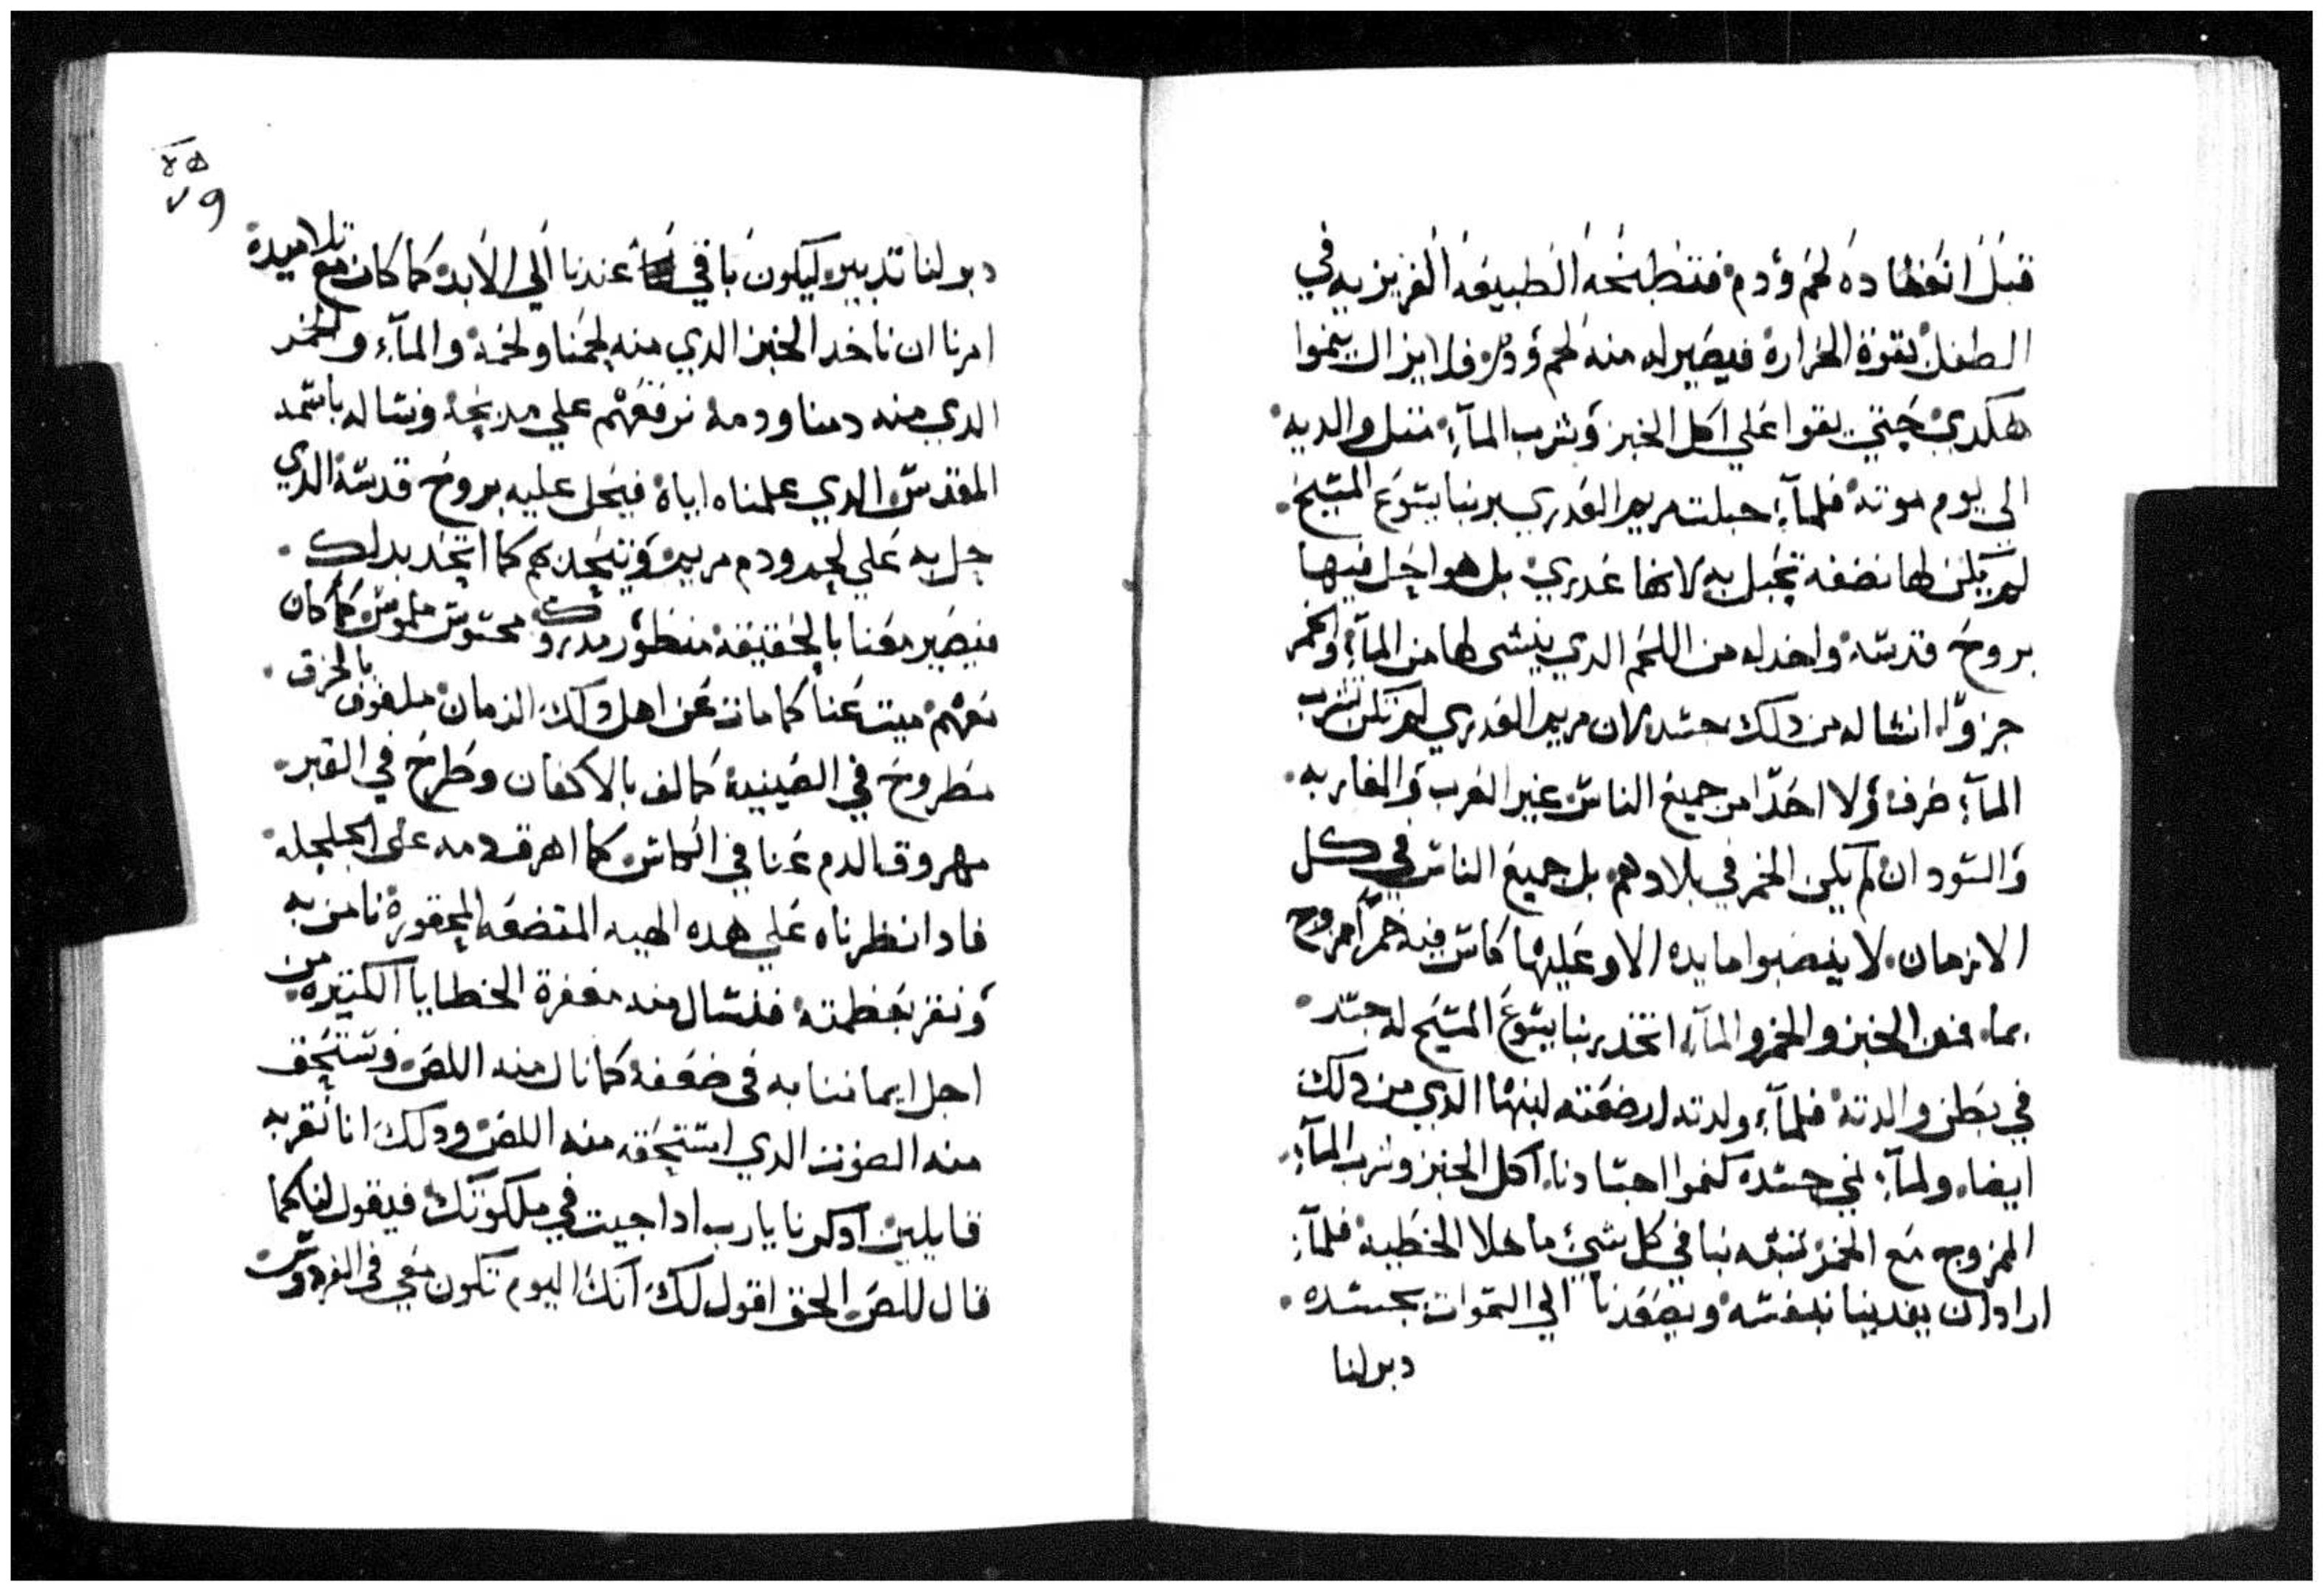 قبل انعقاده لحم ودم فتطبخه الطبيعه الغريزيه في
الطفل بقوة الحرارة فيصير له منه لحم ودم فلا يزال ينموا
هكدي حتي يقوا علي اكل الخبز وشرب المآء متل والديه
الي يوم موته فلمآء حبلت مريم العدري بربنا يسوع المسيح
لم يكن لها نضفه تحبل به لانها عدري بل هو احل فيها
بروح قدسه واخد له من اللحم الدي ينشى لها من المآء والخمر
جزوًا انشا له من دلك جسد لان مريم العدري لم تكن تشرب
المآء صرف ولا احدًا من جميع الناس غير العرب والمغاربه
والسودان لم يكن الخمر في بلادهم بل جميع الناس في كل
الازمان لا ينصبوا مايده الا وعليها كاس فيه خمرًا ممزوج
بماء فمن الخبز والخمر والمآء اتخد ربنا يسوع المسيح له جسد
في بطن والدته فلمآء ولدته ارضعته لبنها الدي من دلك
ايضا ولمآء نمي جسده كنموا اجسادنا اكل الخبز وشرب المآء
الممزوج مع الخمر تشبه بنا في كل شيء ما خلا الخطيه فلمآء
اراد ان يفدينا بنفسه ويصعدنا الي السموات بجسده
دبر لنا
٧٩
دبر لنا تدبير ليكون باقي عندنا الي الابد كما كان مع تلاميده
امرنا ان ناخد الخبز الدي منه لحمنا ولحمه والمآء والخمر
الدي منه دمنا ودمه نرفعهم علي مدبحه ونساله باسمه
المقدس الدي علمناه اياه فيحل عليه بروح قدسه الدي
حل به علي لحم ودم مريم ويتحد بهم كما اتحد بدلك
فيصير معنا بالحقيقة منظور مدروك محسوس ملموس كما كان
معهم ميت عنا كما مات عن اهل دلك الزمان ملفوف بالخرق
مطروح في الصينية كما لف بالاكفان وطرح في القبر
مهروق الدم عنا في الكاس كما اهرق دمه على الجلجله
فادا نظرناه علي هده الهيه المتضعه المحقورة نامن به
ونقر بعظمته فنسال منه مغفرة الخطايا الكتيره من
اجل ايماننا به في ضعفه كما نال منه اللص ونستحق
منه الصوت الدي استحقه منه اللص ودلك انا نقر به
قايلين ادكرنا يارب ادا جيت في ملكوتك فيقول لنا كما
قال للص الحق اقول لك انك اليوم تكون معي في الفردوس